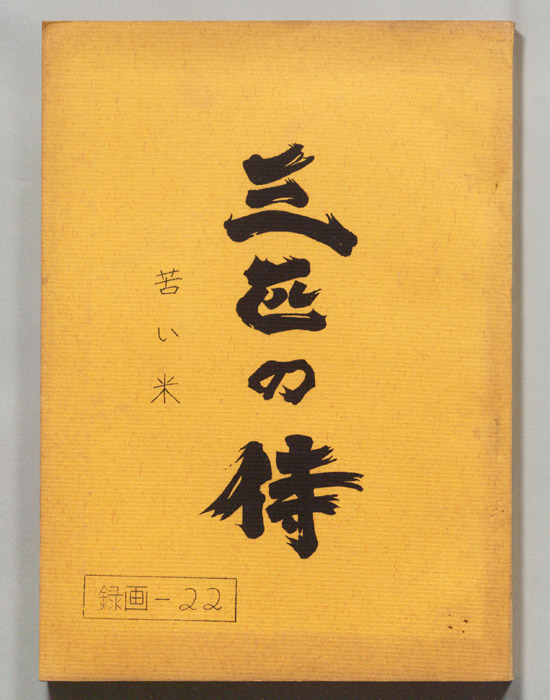 三匹の侍
苦い米
録画-22